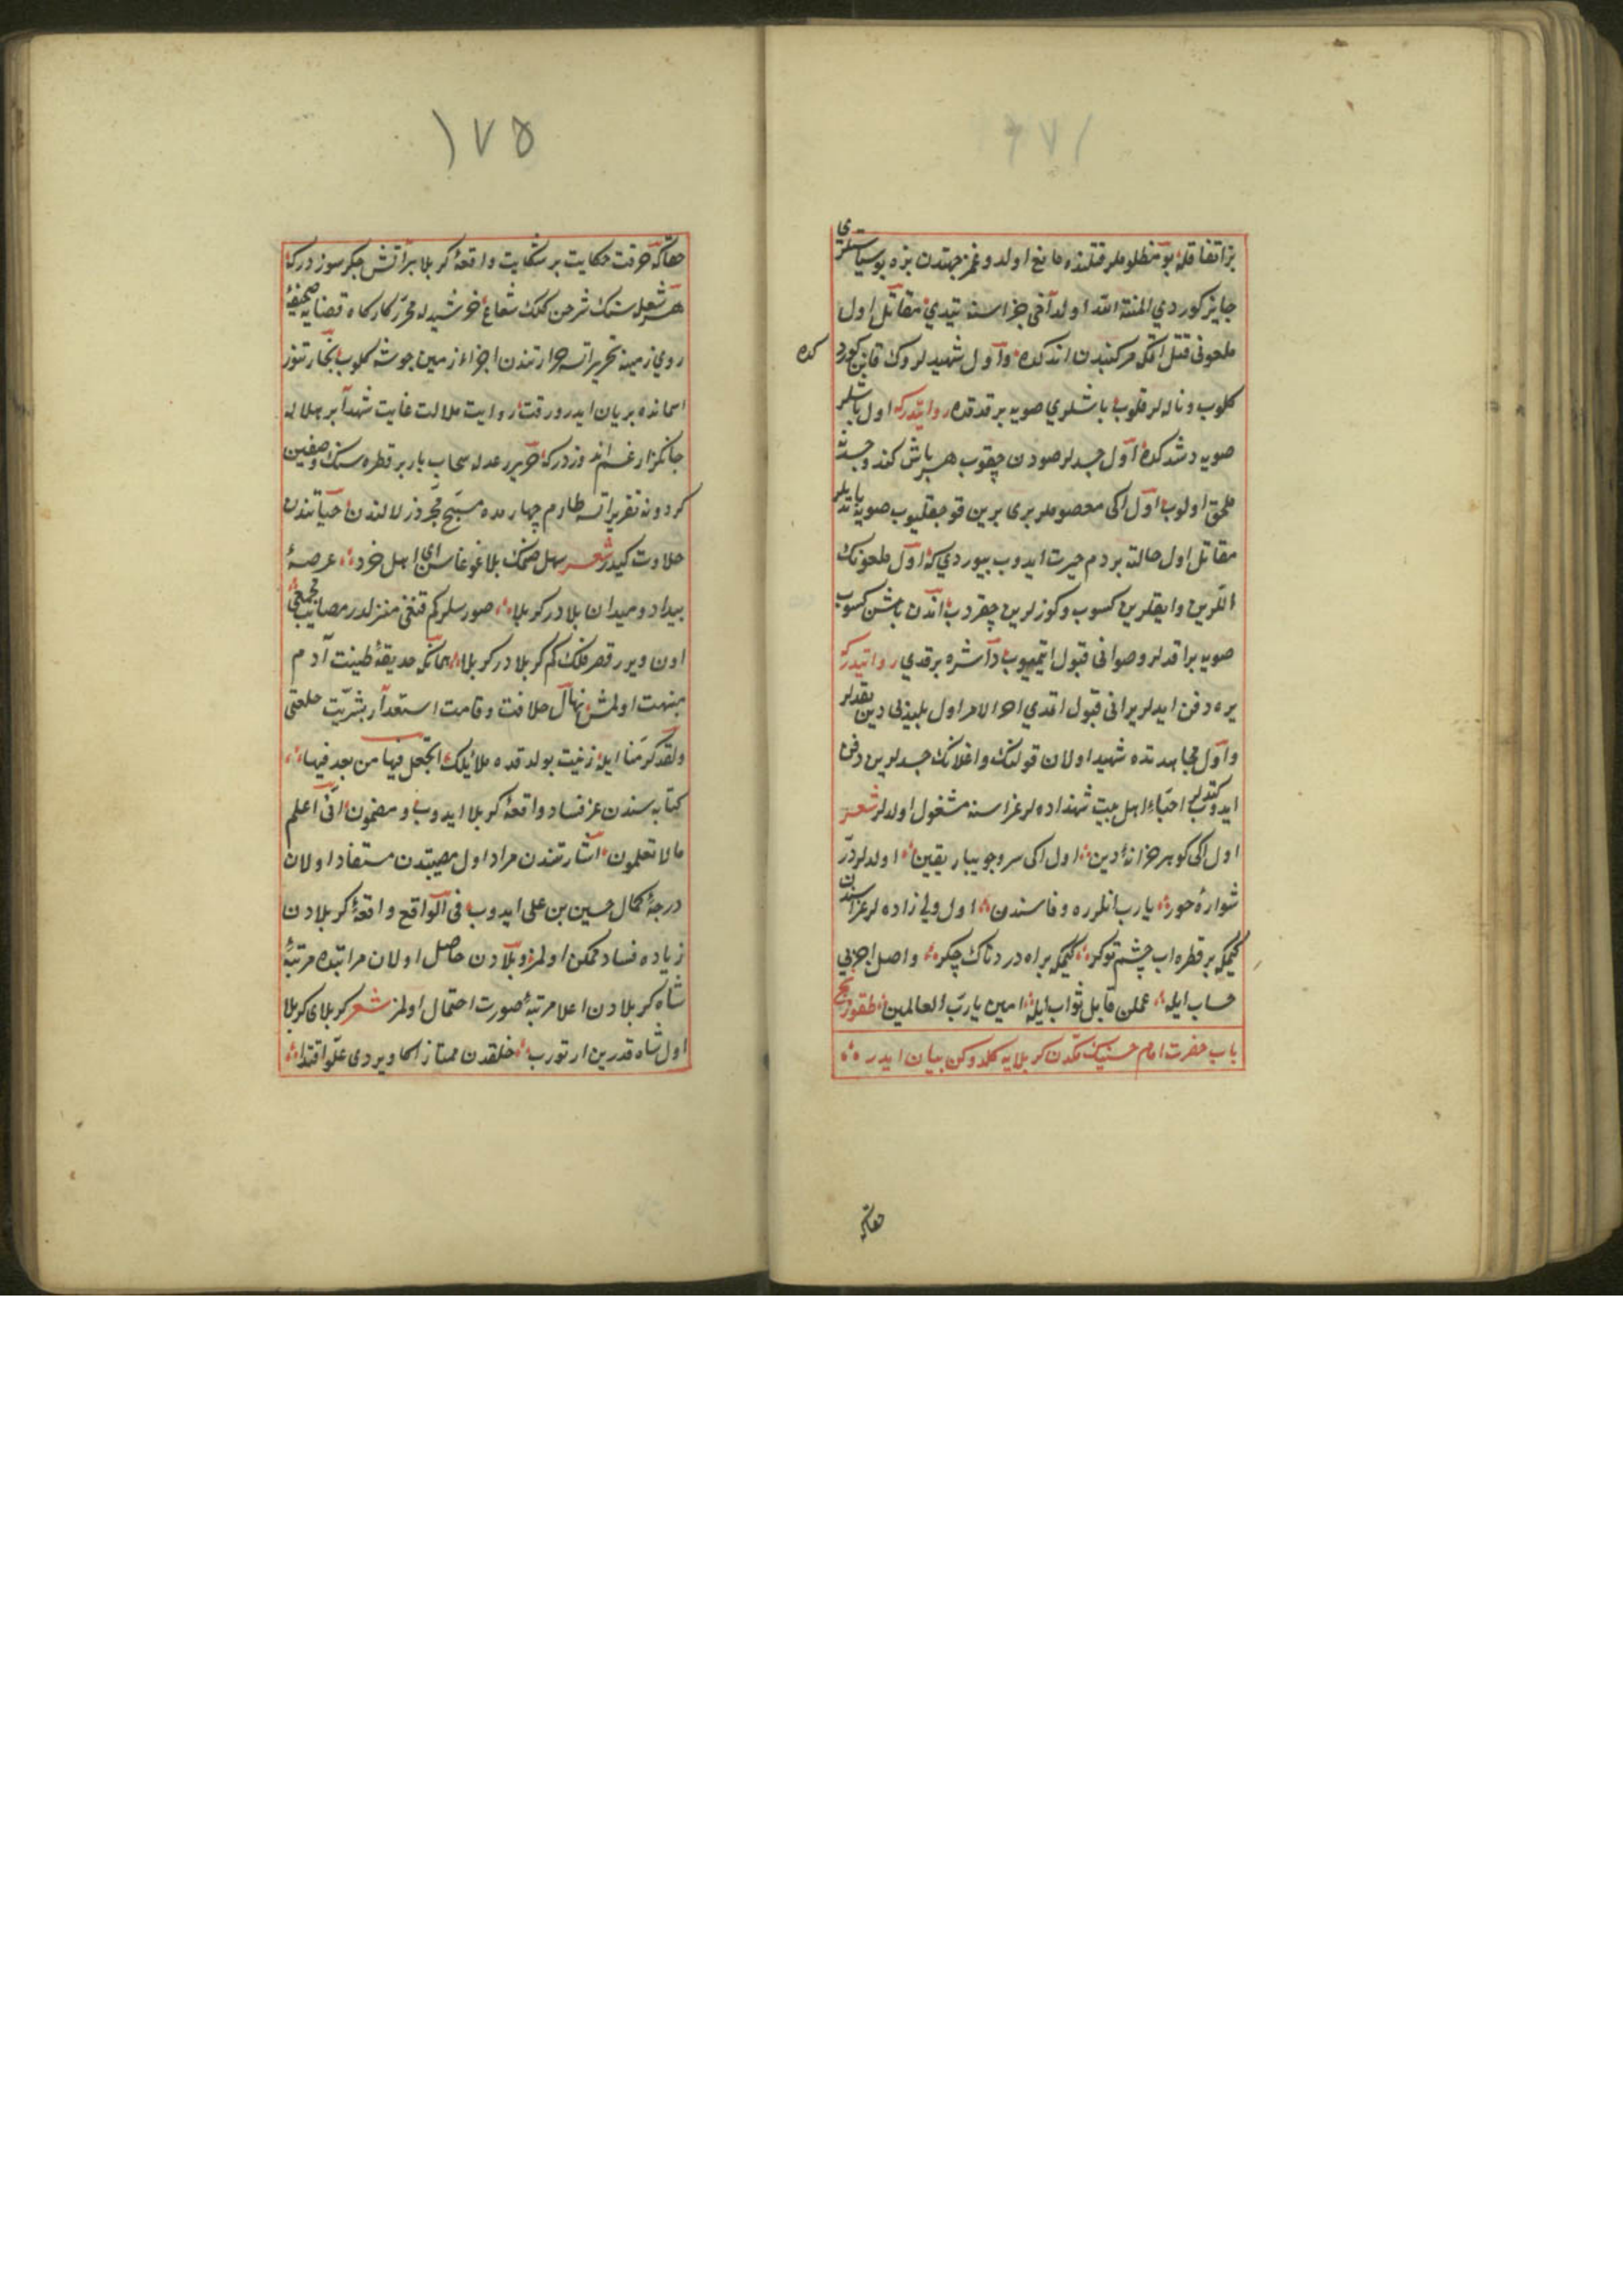 بز اتفاقله بو مظلوملر قتلنده مانع اولدوغمز جهتدن بزه بو سیاستلری
جایز کوردی المنة الله اولدآخی جزاسنه یتدی مقاتل اول
ملعونی قتل اتکل مرکبندن اندکده واول شهیدلروک قانن کورد کده
کلوب و ناله لر قلوب باشلری صویه برقدقده روایتدرکه اول باشلر
صویه دشدکده اول جسدلر صودن چقوب هر باش کندو جسدینه
ملحق اولوب اول اکی معصوملر بری برین قوجقلیوب صویه یاتدیلر
مقاتل اول حالته بردم حیرت ایدوب بیوردی که اول ملعونک
اللرین وایقلرین کسوب وکوزلرین چقردب اندن باشن کسوب
صویه براقدلر وصو انی قبول ایتمیوب داشره برقدی روایتدرکه
یره دفن ایدلر یر انی قبول اتمدی اخر الامر اول بلیذلی دین یقدلر
واول مجاهدتده شهید اولان قولنک واغلانک جسدلرین دفن
ایدوب کتدیلر احباء اهل بیت شهنداده لر عزاسنه مشغول اولدلر شعر
اول اکی کوهر خزانهٔ دین اول اکی سرو جویبار یقین اولدلر در
شوارهٔ حور یارب انلرره وفاسندن اول ولی زاده لر عزاسندن
کیمکه بر قطره اب چشم توکر کیمکه بر اه دردناک چکر واصل اجزی
حساب ایله عملن قابل ثواب ایله امین یا رب العالمین طقوزنجی
باب حضرت امام حسینک مکه دن کربلایه کلدوکن بیان ایدر
حقاکه
١٧٥
حقاکه حرقت حکایت پر شکایت واقعهٔ کربلا بر آتش جکر سوزدرکه
هر شعله سنک شرحن کلک شعاع خورشیدله محرر کارکاه قضا صحیفهٔ
روی زمینه تحریر اتسه حرارتندن اجزاء زمین جوشه کلوب بخار تنور
اسمانده بریان ایدر ورقت روایت ملالت غایت شهدآ بر هلاله
جانکزار غم اندوزدرکه حریر رعدله سحاب یار بر قطره سنک وصفین
کردونه تقریر اتسه طارم چهارمده مسیح مجرد زلالندن حیاتندن
حلاوت کیدر شعر سهل صمنک بلا غوغاسن ای اهل خرد عرصهٔ
بیداد ومیدان بلادر کربلا صورسلر کم قنغی منزلدر مصایب مجمعی
اون ویرر قصر فلک کم کربلادر کربلا همانکه حدیقهٔ طینت آدم
منبت اولمش نهال خلافت وقامت استعدآر بشریت خلعتی
ولقد کرمنا ایله زینت بولدقده ملائیلک اتجعل فیها من یفسد فیها
کتابه سندن عز فساد واقعهٔ کربلا ایدوب ومضمون انی اعلم
مالا تعلمون اشارتندن مراد اول مصیبتدن مستفاد اولان
درجهٔ کمال حسین بن علی ایدوب فی الواقع واقعهٔ کربلادن
زیاده فساد ممکن اولمز وبلادن حاصل اولان مراتبده مرتبهٔ
شاه کربلادن اعلا مرتبه صورت احتمال اولمز شعر کربلای کربلا
اول شاه قدرین ارتورب خلقدن ممتاز اکا ویردی علو اقتدا